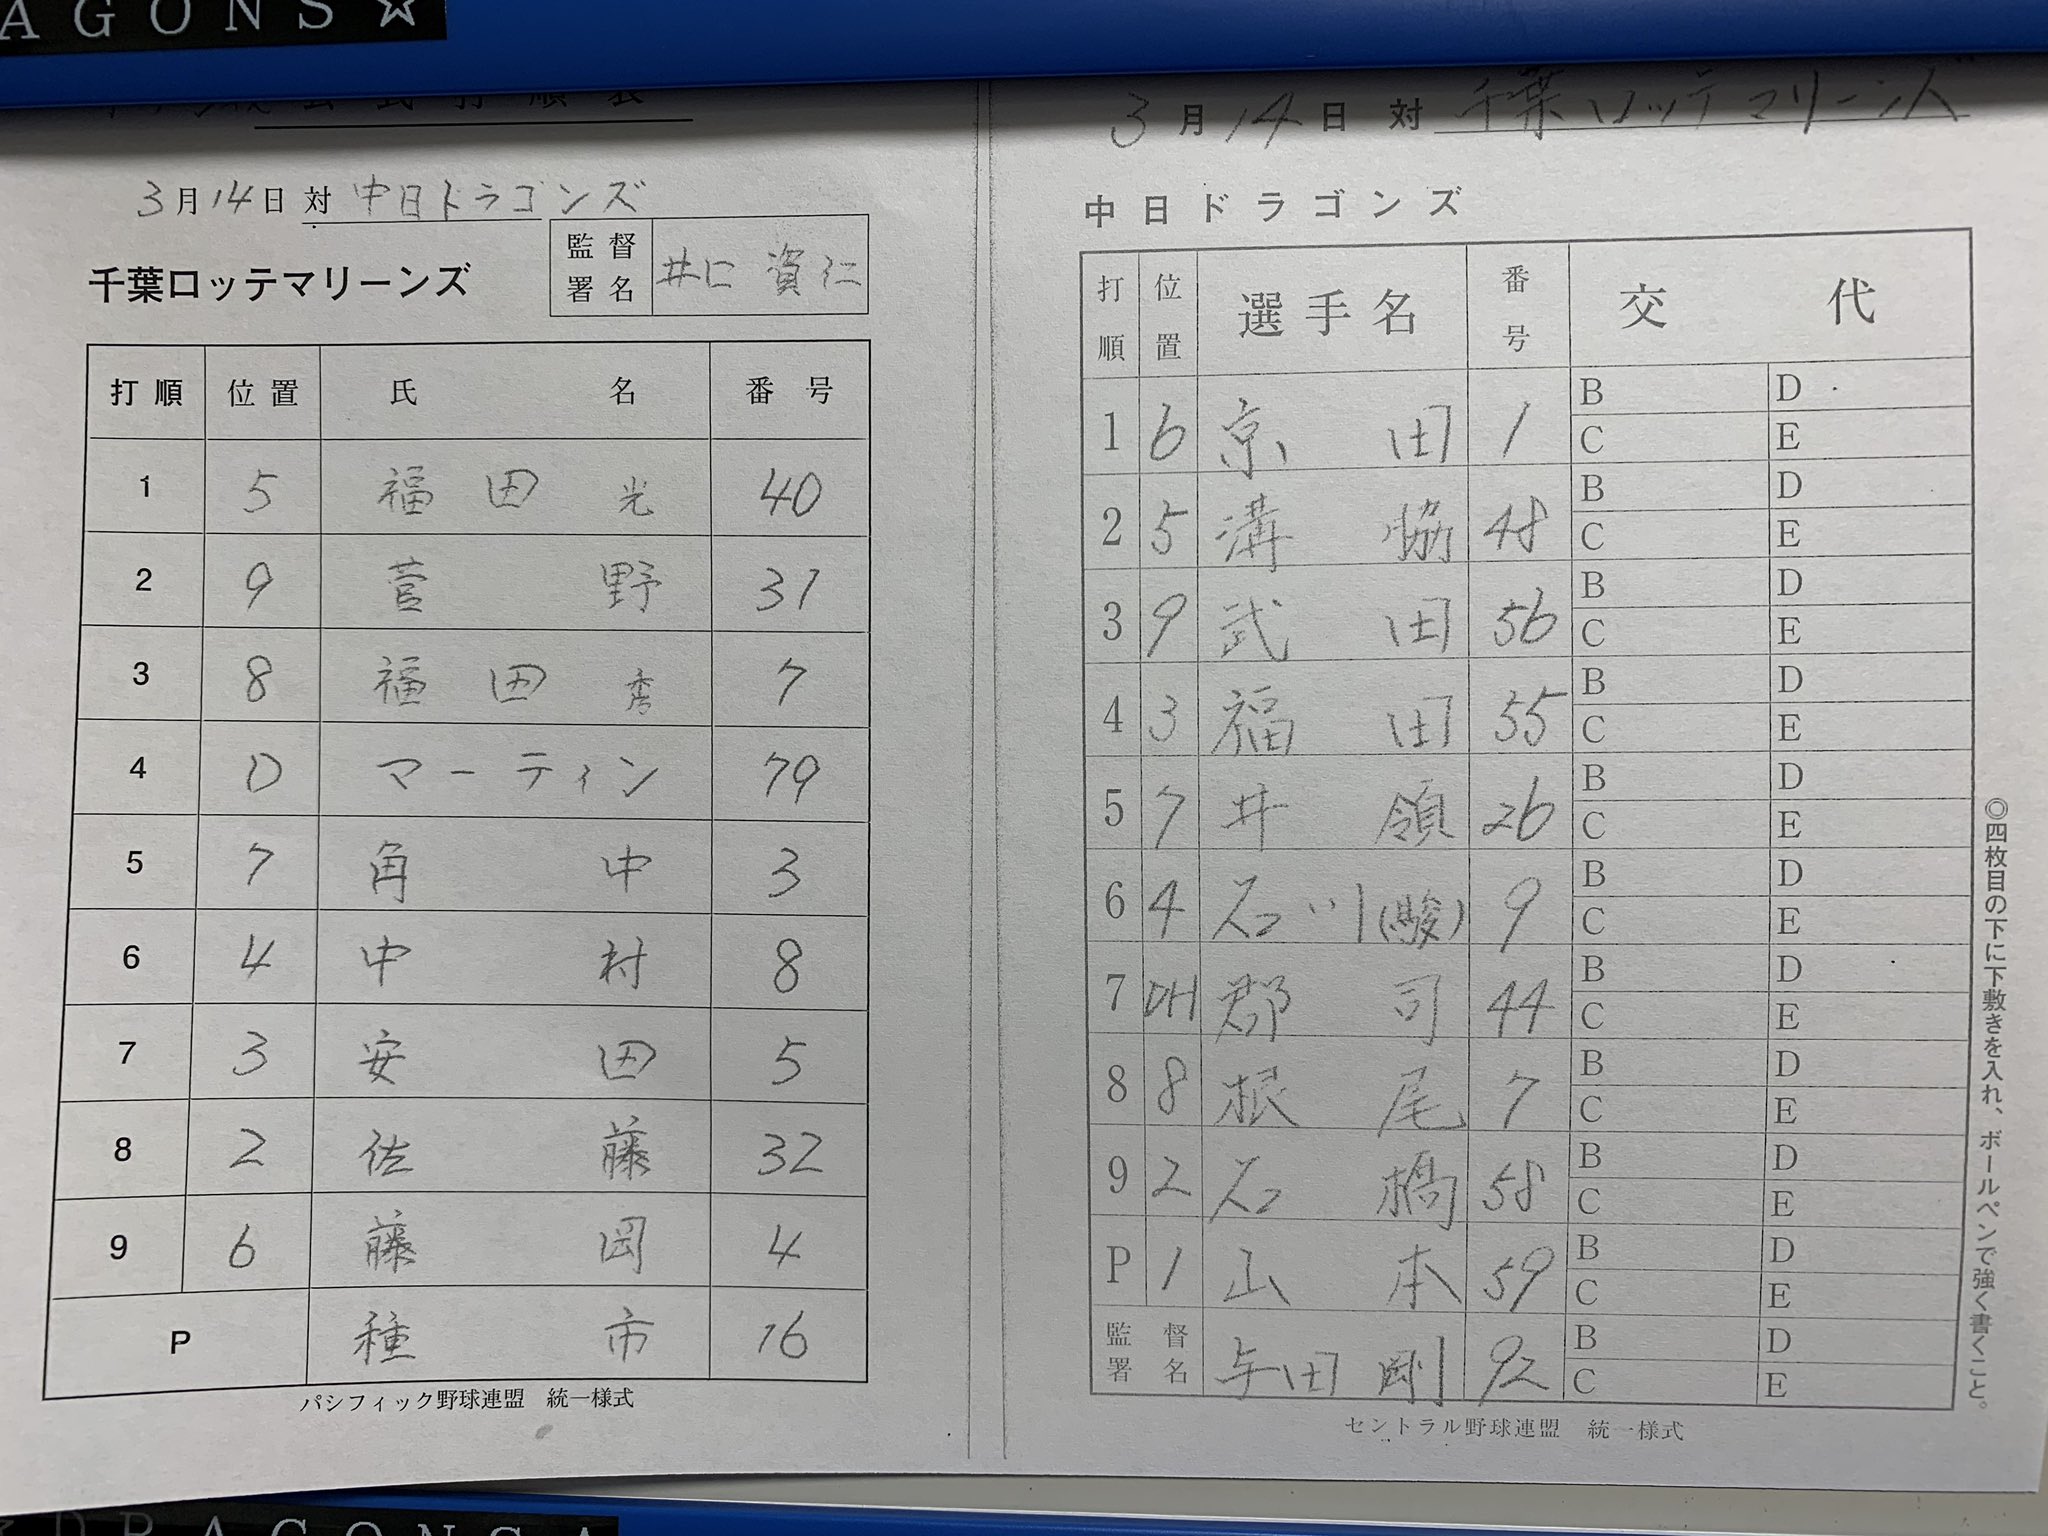 AGONS☆
公式打順表
3月14日 対 中日ドラゴンズ
千葉ロッテマリーンズ
監督署名 井口 資仁
打順 位置 氏名 番号
1 5 福田光 40
2 9 菅野 31
3 8 福田秀 7
4 D マーティン 79
5 7 角中 3
6 4 中村 8
7 3 安田 5
8 2 佐藤 32
9 6 藤岡 4
P 種市 16
パシフィック野球連盟 統一様式
3月14日 対 千葉ロッテマリーンズ
中日ドラゴンズ
打順 位置 選手名 番号 交代
1 6 京田 1 B D
C E
2 5 溝脇 48 B D
C E
3 9 武田 56 B D
C E
4 3 福田 55 B D
C E
5 7 井領 26 B D
C E
6 4 石川(駿) 9 B D
C E
7 DH 郡司 44 B D
C E
8 8 根尾 7 B D
C E
9 2 石橋 58 B D
C E
P 1 山本 59 B D
C E
監督署名 与田 剛 92 B D
C E
◎四枚目の下に下敷きを入れ、ボールペンで強く書くこと。
セントラル野球連盟 統一様式
☆DRAGONS